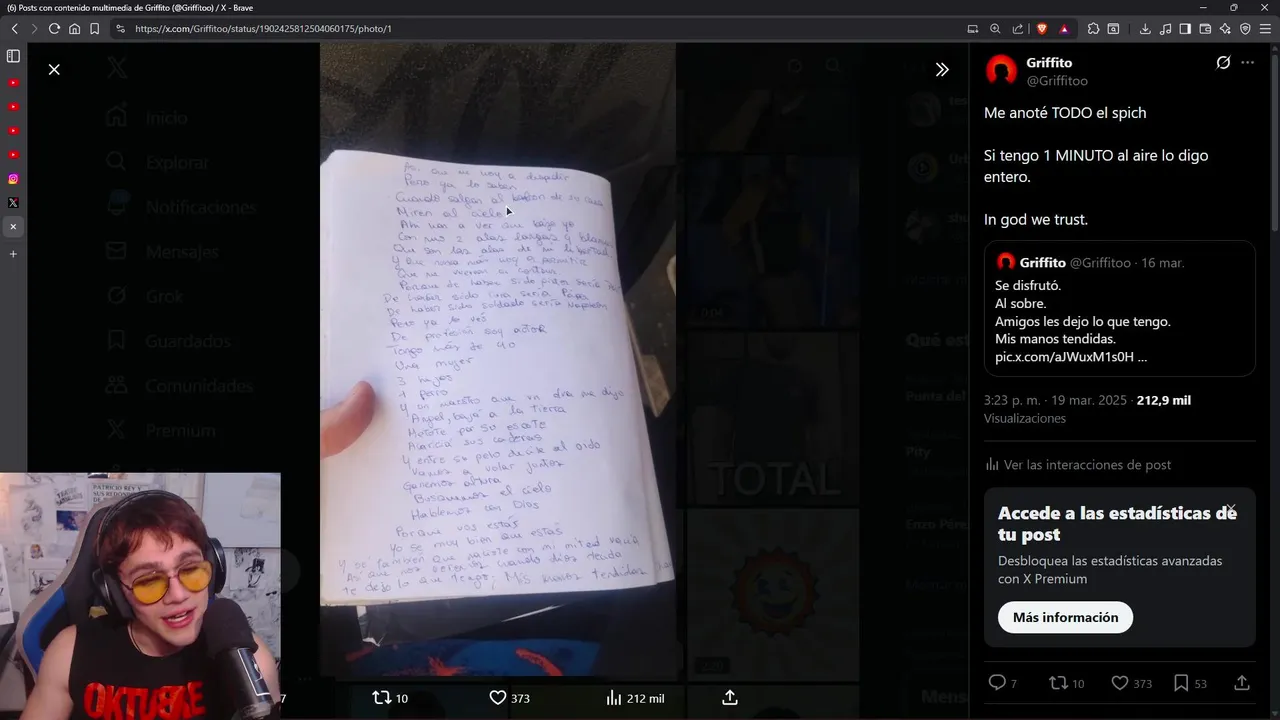 (6) Posts con contenido multimedia de Griffito (@Griffitoo) / X - Brave
https://x.com/Griffitoo/status/1902425812504060175/photo/1
Inicio
Explorar
Notificaciones
Mensajes
Grok
Guardados
Comunidades
Premium
Así que me voy a despedir
Pero ya lo saben
Cuando salgan al balcon de su casa
Miren al cielo
Ahí van a ver que bajo yo
Con mis 2 alas largas y blancas
Que son las alas de mi libertad
Y que nunca más voy a permitir
Que me vuelvan a cortar
Porque de haber sido pintor sería
De haber sido cura sería Papa
De haber sido soldado sería Napoleón
Pero ya lo ves
De profesión soy actor
Tengo más de 40
Una mujer
3 hijos
1 perro
Y un maestro que un día me dijo
Angel, bajá a la tierra
Metete por su escote
Acariciá sus caderas
Y entre su pelo decile al oido
Vamos a volar juntos
Ganemos altura
Busquemos el cielo
Hablemos con Dios
Porque vos estás
Yo se muy bien que estás
Y sé también que
con mi mitad vacía
Así que nos veremos cuando dios decida
te dejo lo que tengo; Mis manos tendidas
TOTAL
0:04
2:20
Griffito
@Griffitoo
Me anoté TODO el spich
Si tengo 1 MINUTO al aire lo digo
entero.
In god we trust.
Griffito @Griffitoo · 16 mar.
Se disfrutó.
Al sobre.
Amigos les dejo lo que tengo.
Mis manos tendidas.
pic.x.com/aJWuxM1s0H ...
3:23 p. m. · 19 mar. 2025 · 212,9 mil
Visualizaciones
Ver las interacciones de post
Accede a las estadísticas de
tu post
Desbloquea las estadísticas avanzadas
con X Premium
Más información
7 10 373 53
7 10 373 212 mil
PATRICIO REY Y
SUS REDONDITOS